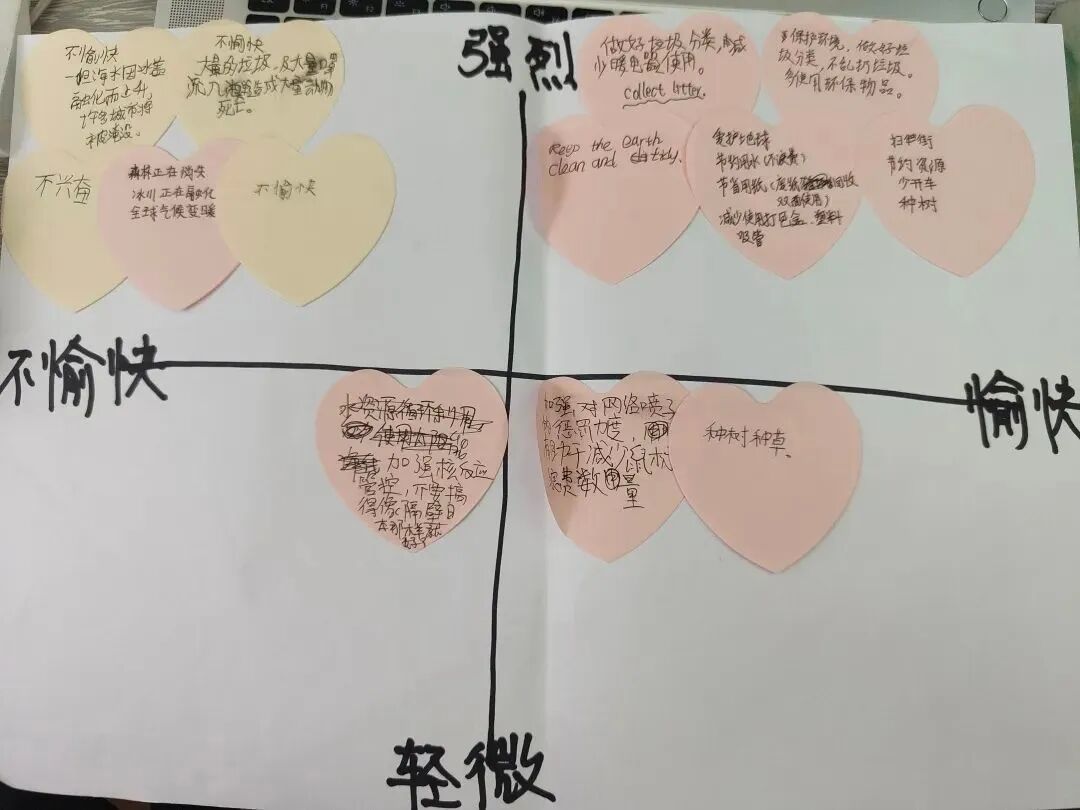 强烈
不愉快
一但海水因冰盖
融化而上升,
许多城市将
被淹没。
不愉快
大量的垃圾,及大量
沉入 造成大量动物
死亡。
不兴奋
森林正在消失
冰川正在融化
全球气候变暖
不愉快
做好垃圾分类,减
少暖电器使用。
collect litter.
保护环境,做好垃
圾分类,不乱扔垃圾。
多使用环保物品。
Keep the earth
clean and tidy.
爱护地球
节约用水(不浪费)
节省用纸(废纸 回收
双面使用)
减少使用打包盒、塑料
吸管
扫大街
节约资源
少开车
种树
不愉快
愉快
水资源循环利用
使用太阳能
加强核反应
管控,不要搞
得像隔壁日
本那样就
好了
加强对网络喷子
的惩罚力度,
有助于减少
浪费数量
种树种草、
轻微